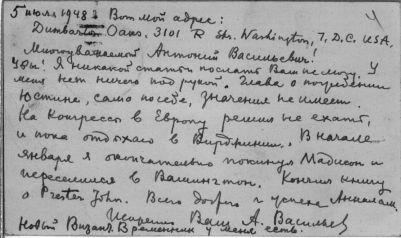 5 июля 1948 г. Вот мой адрес:
Dumbarton Oaks, 3101 R Str. Washington, 7, D.C. USA.
Многоуважаемый Антоний Васильевич!
Увы! Я никакой статьи послать Вам не могу. У
меня нет ничего под рукой. Глава о погребении
Юстина, само по себе, значения не имеет.
На Конгресс в Европу решил не ехать,
и пока отдыхаю в Вирджинии. В начале
января я окончательно покинул Мадисон и
переселился в Вашингтон. Кончил книгу
о Prester John. Всего доброго и успеха Анналам.
Искренно Ваш А. Васильев
Новый Визант. Временник у меня есть.